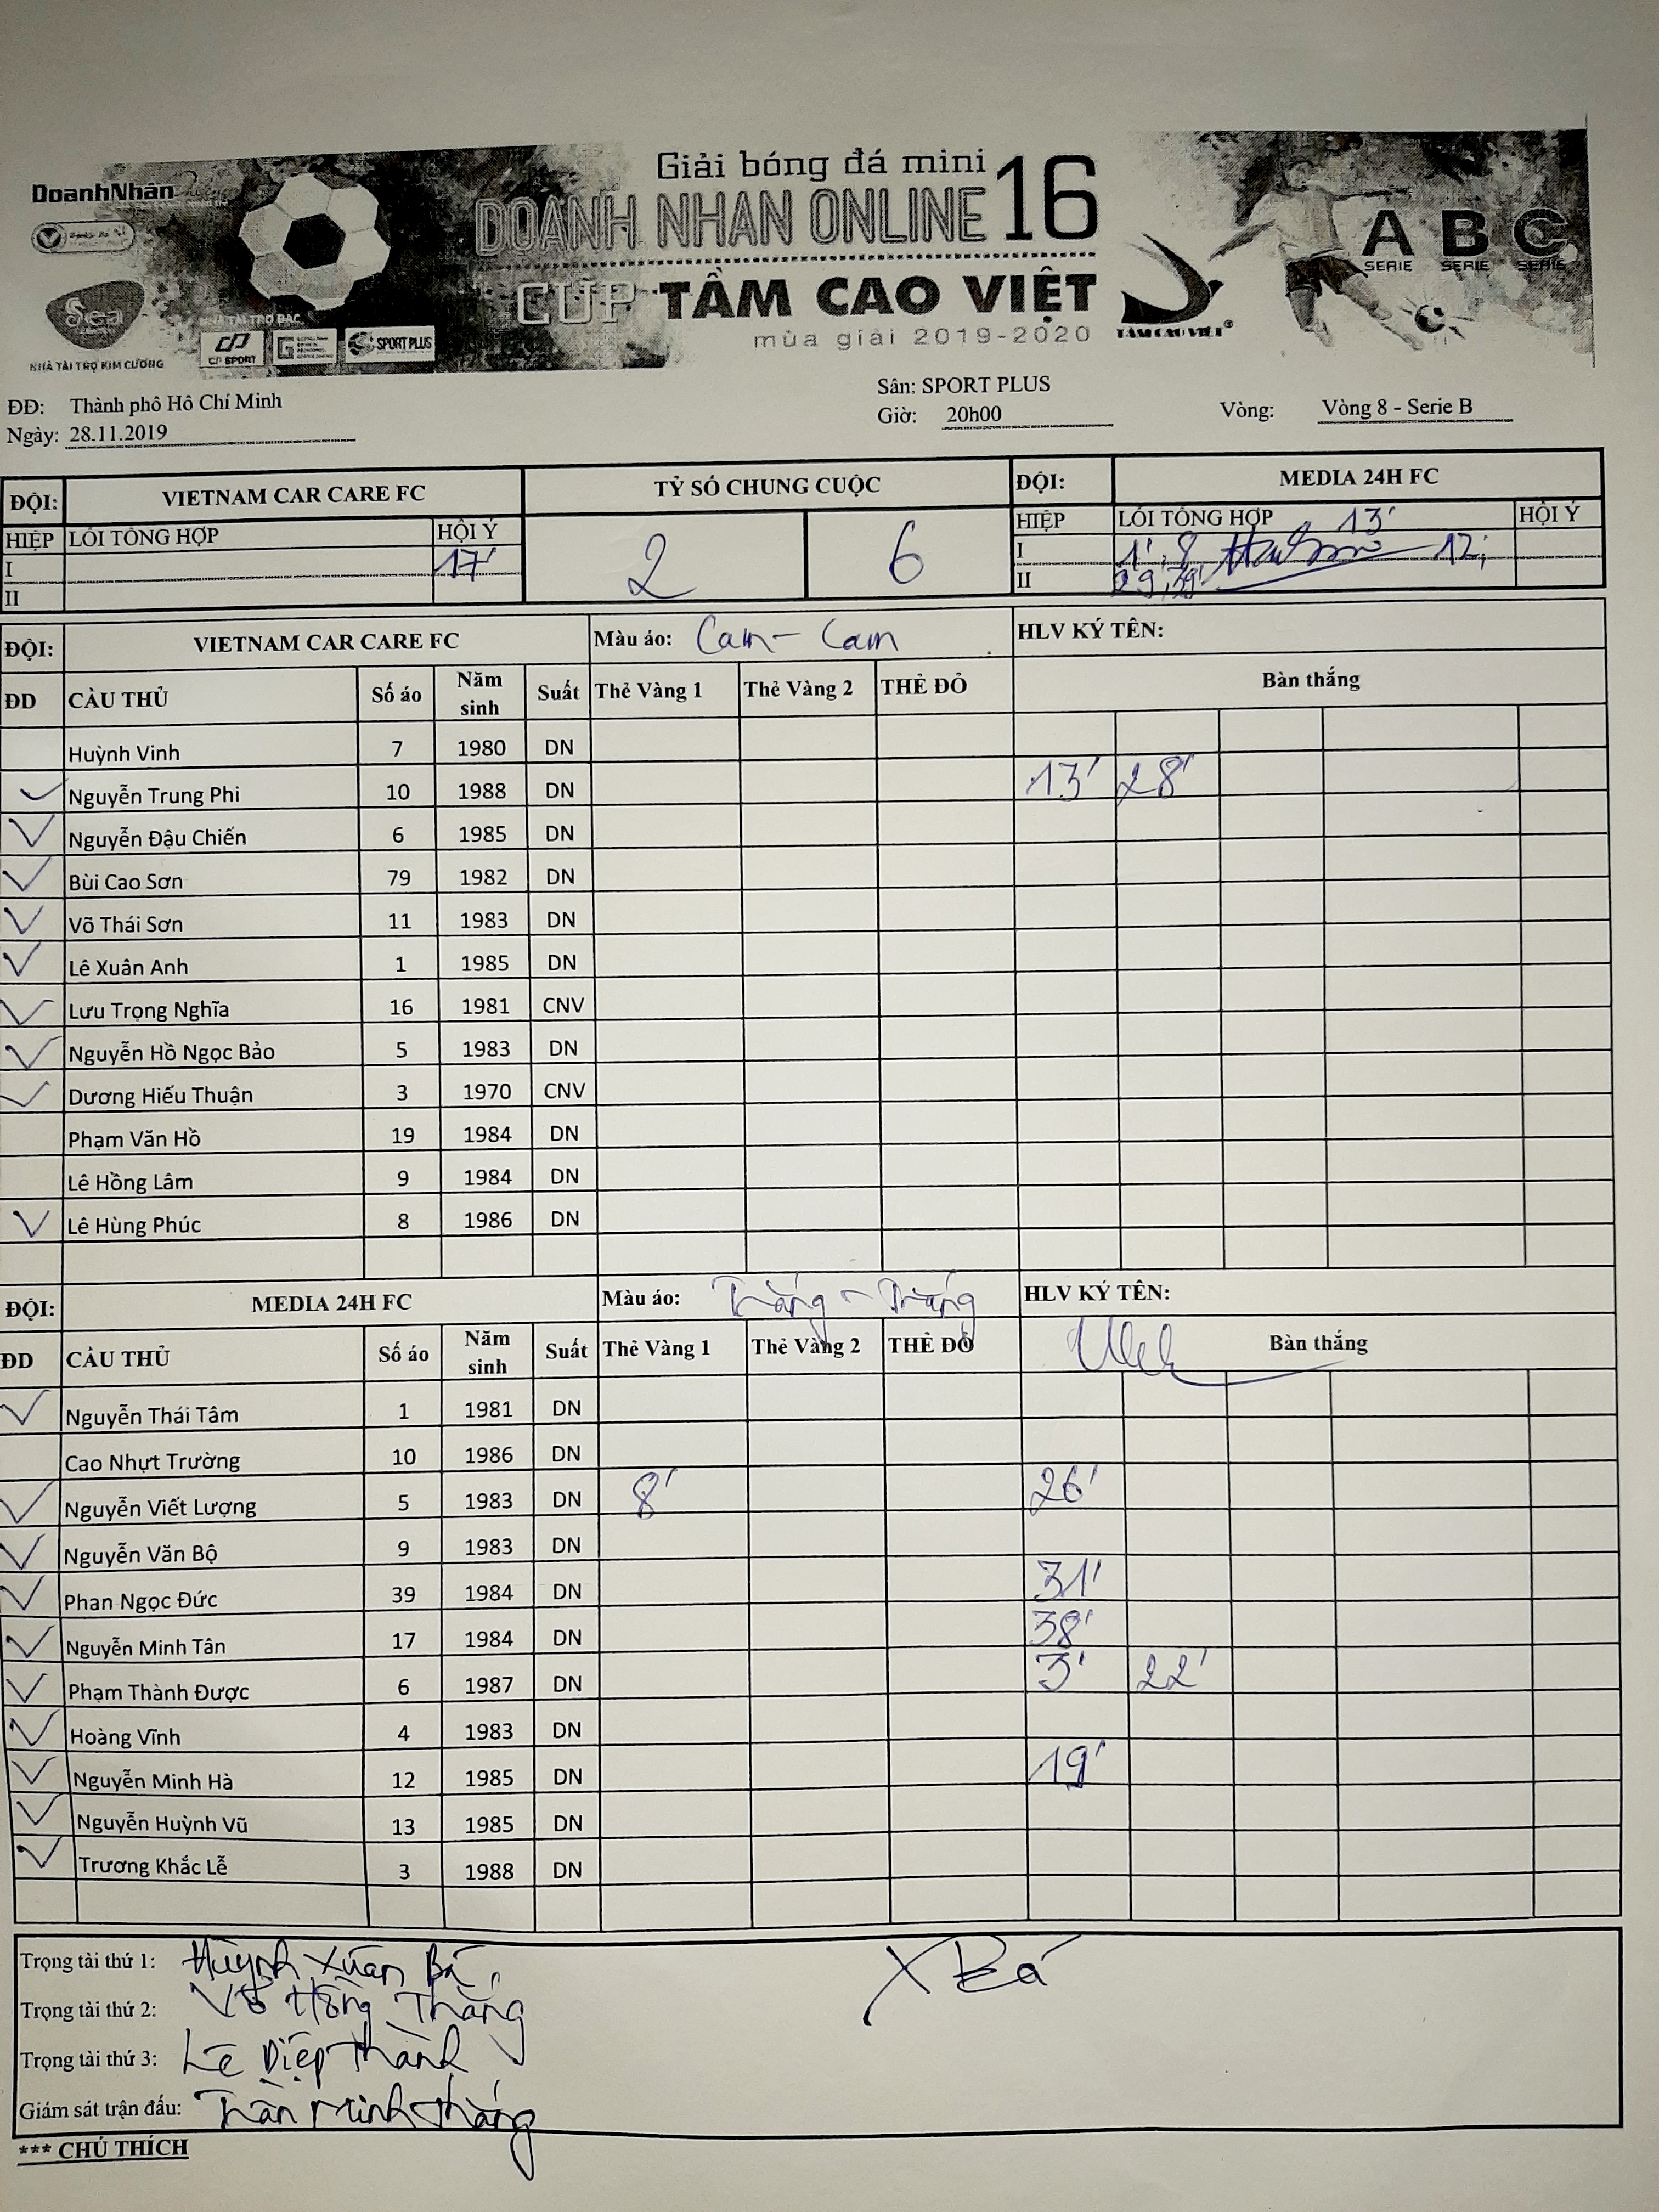 Giải bóng đá mini
DOANH NHAN ONLINE 16
CUP TẦM CAO VIỆT
mùa giải 2019-2020
DoanhNhân
Sea
NHÀ TÀI TRỢ KIM CƯƠNG
NHÀ TÀI TRỢ BẠC
CP SPORT
SPORT PLUS
TÂM CAO VIỆT®
A B C
SERIE SERIE SERIE
ĐĐ: Thành phô Hô Chí Minh
Sân: SPORT PLUS
Ngày: 28.11.2019
Giờ: 20h00
Vòng: Vòng 8 - Serie B
ĐỘI: VIETNAM CAR CARE FC TỶ SỐ CHUNG CUỘC ĐỘI: MEDIA 24H FC
HIỆP LỖI TỔNG HỢP HỘI Ý 2 6 HIỆP LỖI TỔNG HỢP 13' HỘI Ý
I 17' I 1', 8 12,
II II 29, 39'
ĐỘI: VIETNAM CAR CARE FC Màu áo: Cam - Cam HLV KÝ TÊN:
ĐD CẦU THỦ Số áo Năm sinh Suất Thẻ Vàng 1 Thẻ Vàng 2 THẺ ĐỎ Bàn thắng
Huỳnh Vinh 7 1980 DN
Nguyễn Trung Phi 10 1988 DN 13' 28'
Nguyễn Đậu Chiến 6 1985 DN
Bùi Cao Sơn 79 1982 DN
Võ Thái Sơn 11 1983 DN
Lê Xuân Anh 1 1985 DN
Lưu Trọng Nghĩa 16 1981 CNV
Nguyễn Hồ Ngọc Bảo 5 1983 DN
Dương Hiếu Thuận 3 1970 CNV
Phạm Văn Hồ 19 1984 DN
Lê Hồng Lâm 9 1984 DN
Lê Hùng Phúc 8 1986 DN
ĐỘI: MEDIA 24H FC Màu áo: Trắng - Trắng HLV KÝ TÊN:
ĐD CẦU THỦ Số áo Năm sinh Suất Thẻ Vàng 1 Thẻ Vàng 2 THẺ ĐỎ Bàn thắng
Nguyễn Thái Tâm 1 1981 DN
Cao Nhựt Trường 10 1986 DN
Nguyễn Viết Lượng 5 1983 DN 8' 26'
Nguyễn Văn Bộ 9 1983 DN
Phan Ngọc Đức 39 1984 DN 31'
Nguyễn Minh Tân 17 1984 DN 38'
Phạm Thành Được 6 1987 DN 3' 22'
Hoàng Vĩnh 4 1983 DN
Nguyễn Minh Hà 12 1985 DN 19'
Nguyễn Huỳnh Vũ 13 1985 DN
Trương Khắc Lễ 3 1988 DN
Trọng tài thứ 1: Huỳnh Xuân Bá
Trọng tài thứ 2: Võ Hồng Thắng
Trọng tài thứ 3: Lê Diệp Thành
Giám sát trận đấu: Trần Minh Thắng
XBá
*** CHÚ THÍCH